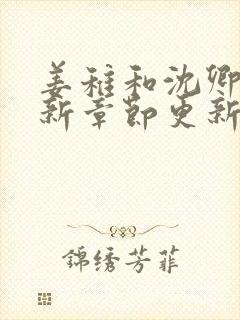 姜稚和沈卿
新章节更新
錦绣芳菲